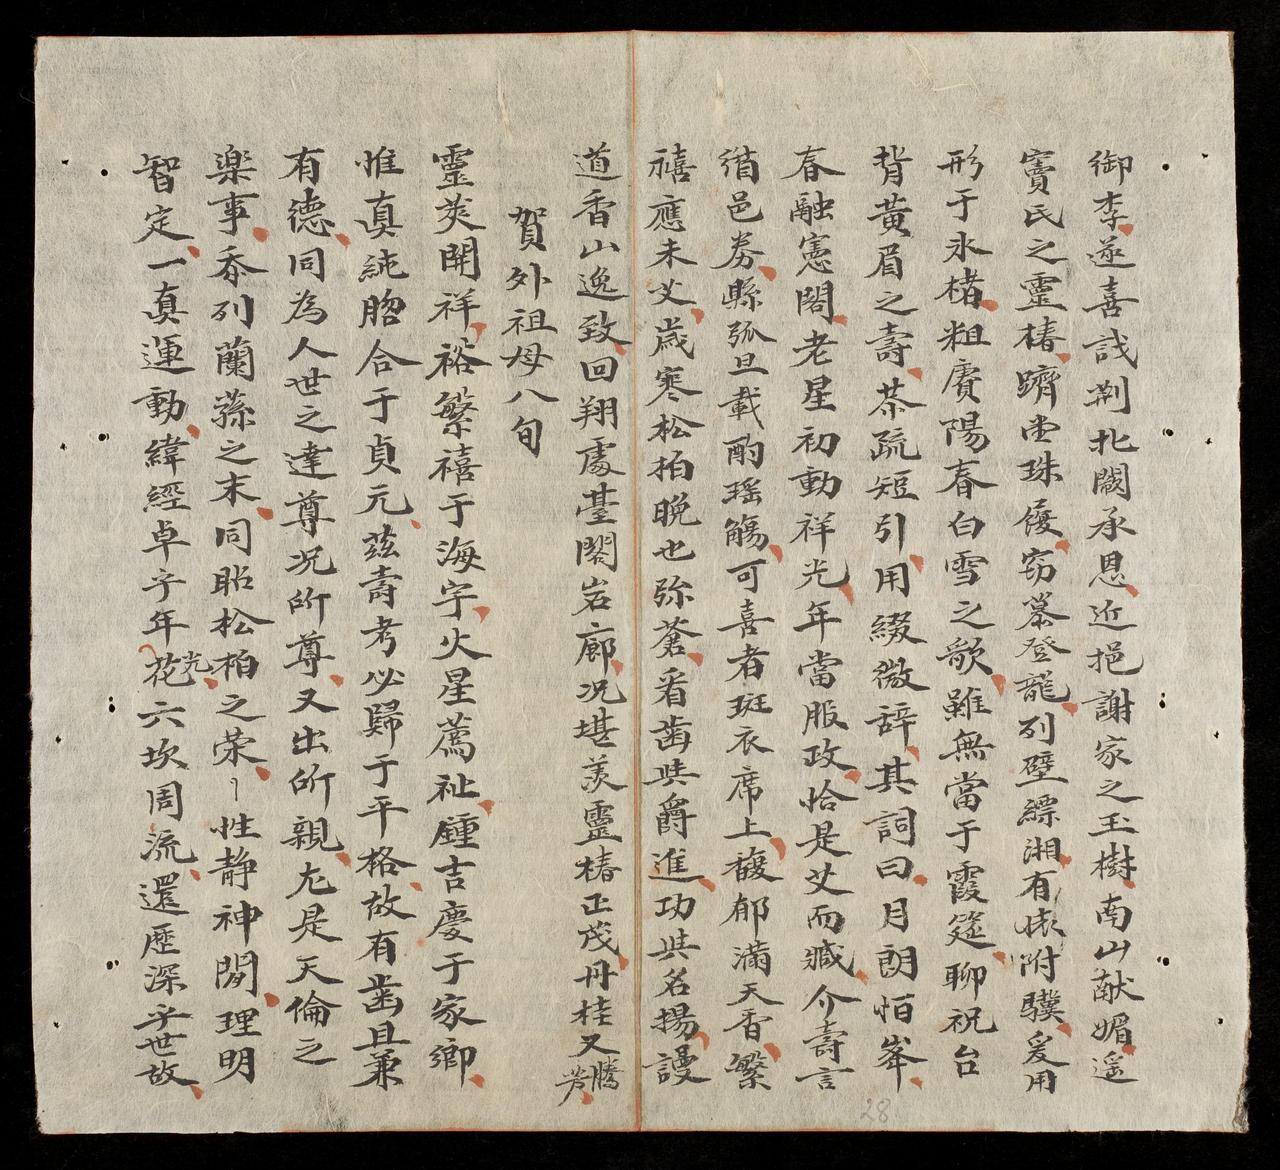 御李遂喜識荆北闕承恩近挹謝家之玉樹南山献媚遥
竇氏之靈椿躋堂珠履窃慕登龍列壁縹湘有㨿附驥爰用
形于氷楮粗賡陽春白雪之歌雖無當于霞筵聊祝台
背黄眉之壽恭疏短引用綴微辞其詞曰月朗恒峯
春融憲閣老星初動祥光年當服政恰是艾而臧介壽言
酒邑劵縣弧旦載酌瑶觴可喜者斑衣席上馥郁滿天香繁
禧應未艾歲寒松柏晩也弥蒼看齒共爵進功共名揚謾
道香山逸致回翔處䑓閣岩廊况堪羡靈椿正茂丹桂又騰芳
賀外祖母八旬
靈莢開祥裕繁禧于海宇火星薦祉鍾吉慶于家鄉
惟真純脗合于貞元茲壽考必歸于平格故有齒且兼
有德同為人世之達尊况所尊又出所親尤是天倫之
楽事忝列蘭蓀之末同昭松柏之荣〢性静神閒理明
智定一真運動緯經卓乎年花光六坎周流還歷深乎世故